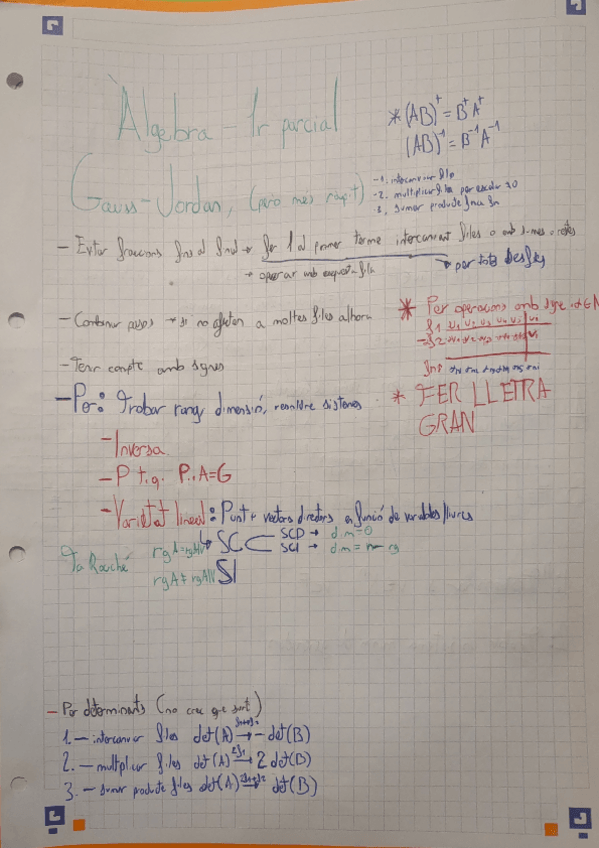 Àlgebra – 1r parcial
* (AB)^t = B^t A^t
(AB)^-1 = B^-1 A^-1
Gauss-Jordan, (però més ràpit)
-1. intercanviar
-2. multiplicar files per escalar ≠0
-3. sumar producte
– Evitar fraccions fins al final → fer 1 al primer terme intercanviant files o amb sumes o restes
→ operar amb aquesta fila
→ per tots
– Combinar passos → si no afecten a moltes files alhora
* Per operacions amb
– Tenir compte amb signes
– Per: Trobar rang, dimensió, resoldre sistemes
* FER LLETRA
GRAN
– Inversa
– P t.q. P·A=G
– Varietat lineal: Punt + vectors directors en funció de variables lliures
Ta Rouché
rgA = rgA|b → SC
SCD → dim=0
SCI → dim = n – rg
rgA ≠ rgA|b SI
– Per determinants (no crec que surti)
1. – intercanviar files det(A) → – det(B)
2. – multiplicar files det(A) → 2 det(B)
3. – sumar producte files det(A) → det(B)